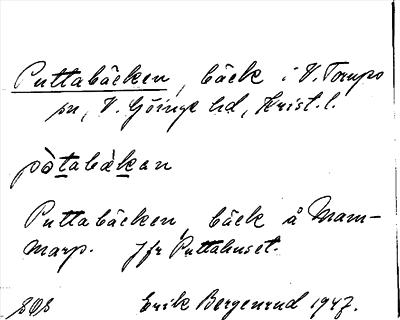 Puttabäcken, bäck i V. Torups
sn, V. Göinge hd, Krist. l.
pòtabæ̀kan
Puttabäcken, bäck å Mam-
marp. Jfr Puttahuset.
Erik Bergenrud 1947.